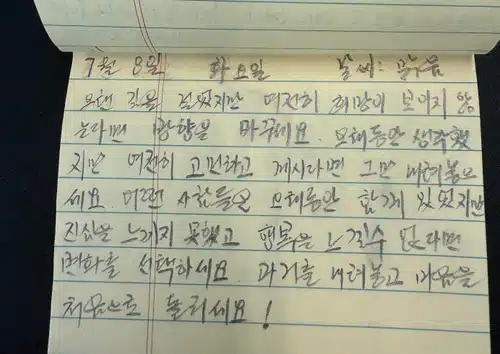 7월 8일 화요일 날씨: 맑음
오랜 길을 걸었지만 여전히 희망이 보이지 않
는다면 방향을 바꾸세요. 오래동안 생각했
지만 여전히 고민하고 계시다면 그만 내려놓으
세요. 어떤 사람들은 오래동안 함께 있었지만
진심을 느끼지 못했고 행복을 느낄수 없다면
변화를 선택하세요. 과거를 내려놓고 마음을
처음으로 돌리세요!